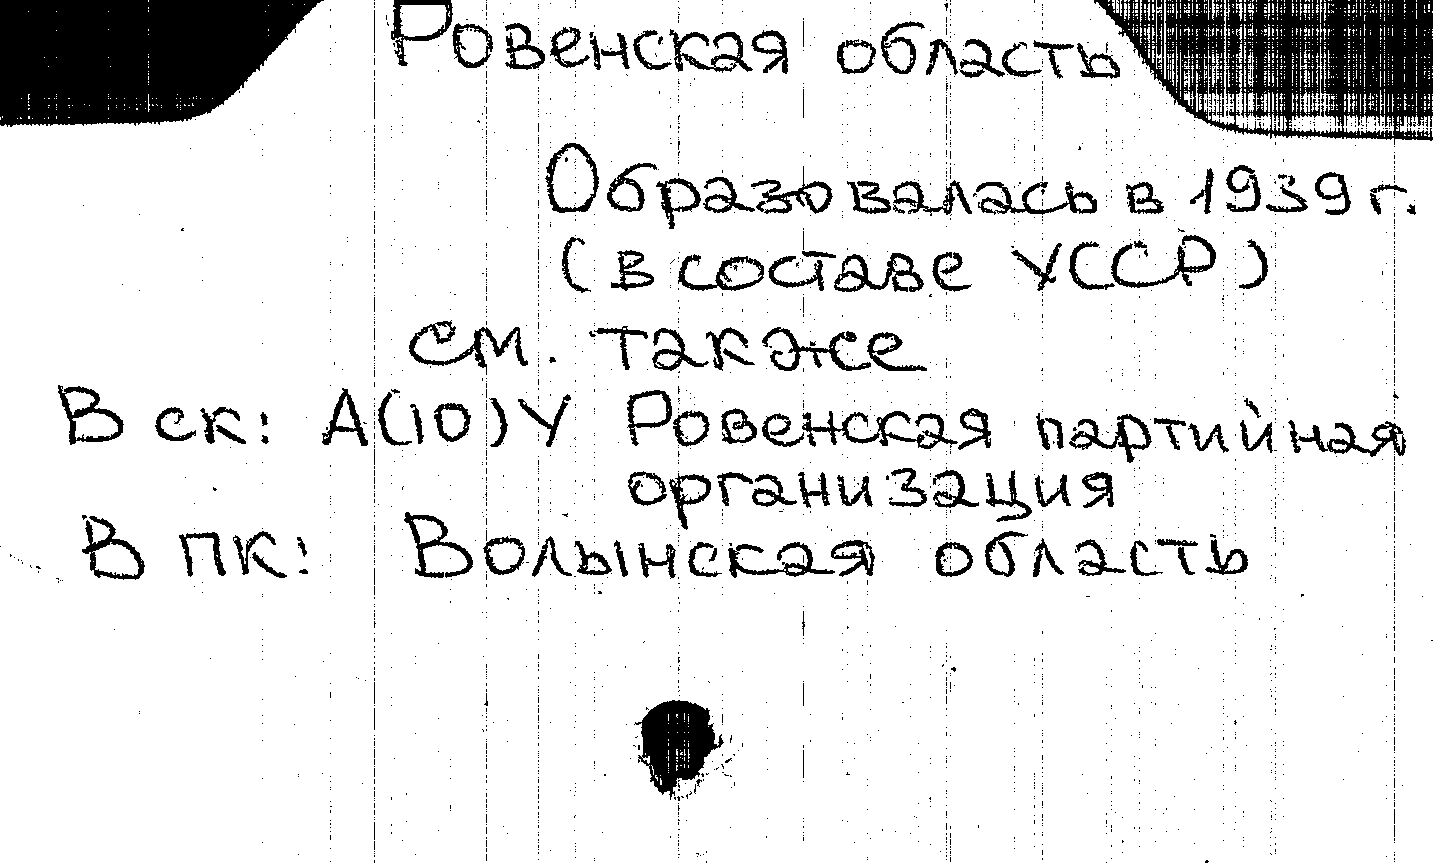 Ровенская область
Образовалась в 1939 г.
(в составе УССР)
см. также
В ск: А(10)У Ровенская партийная
организация
В ПК: Волынская область